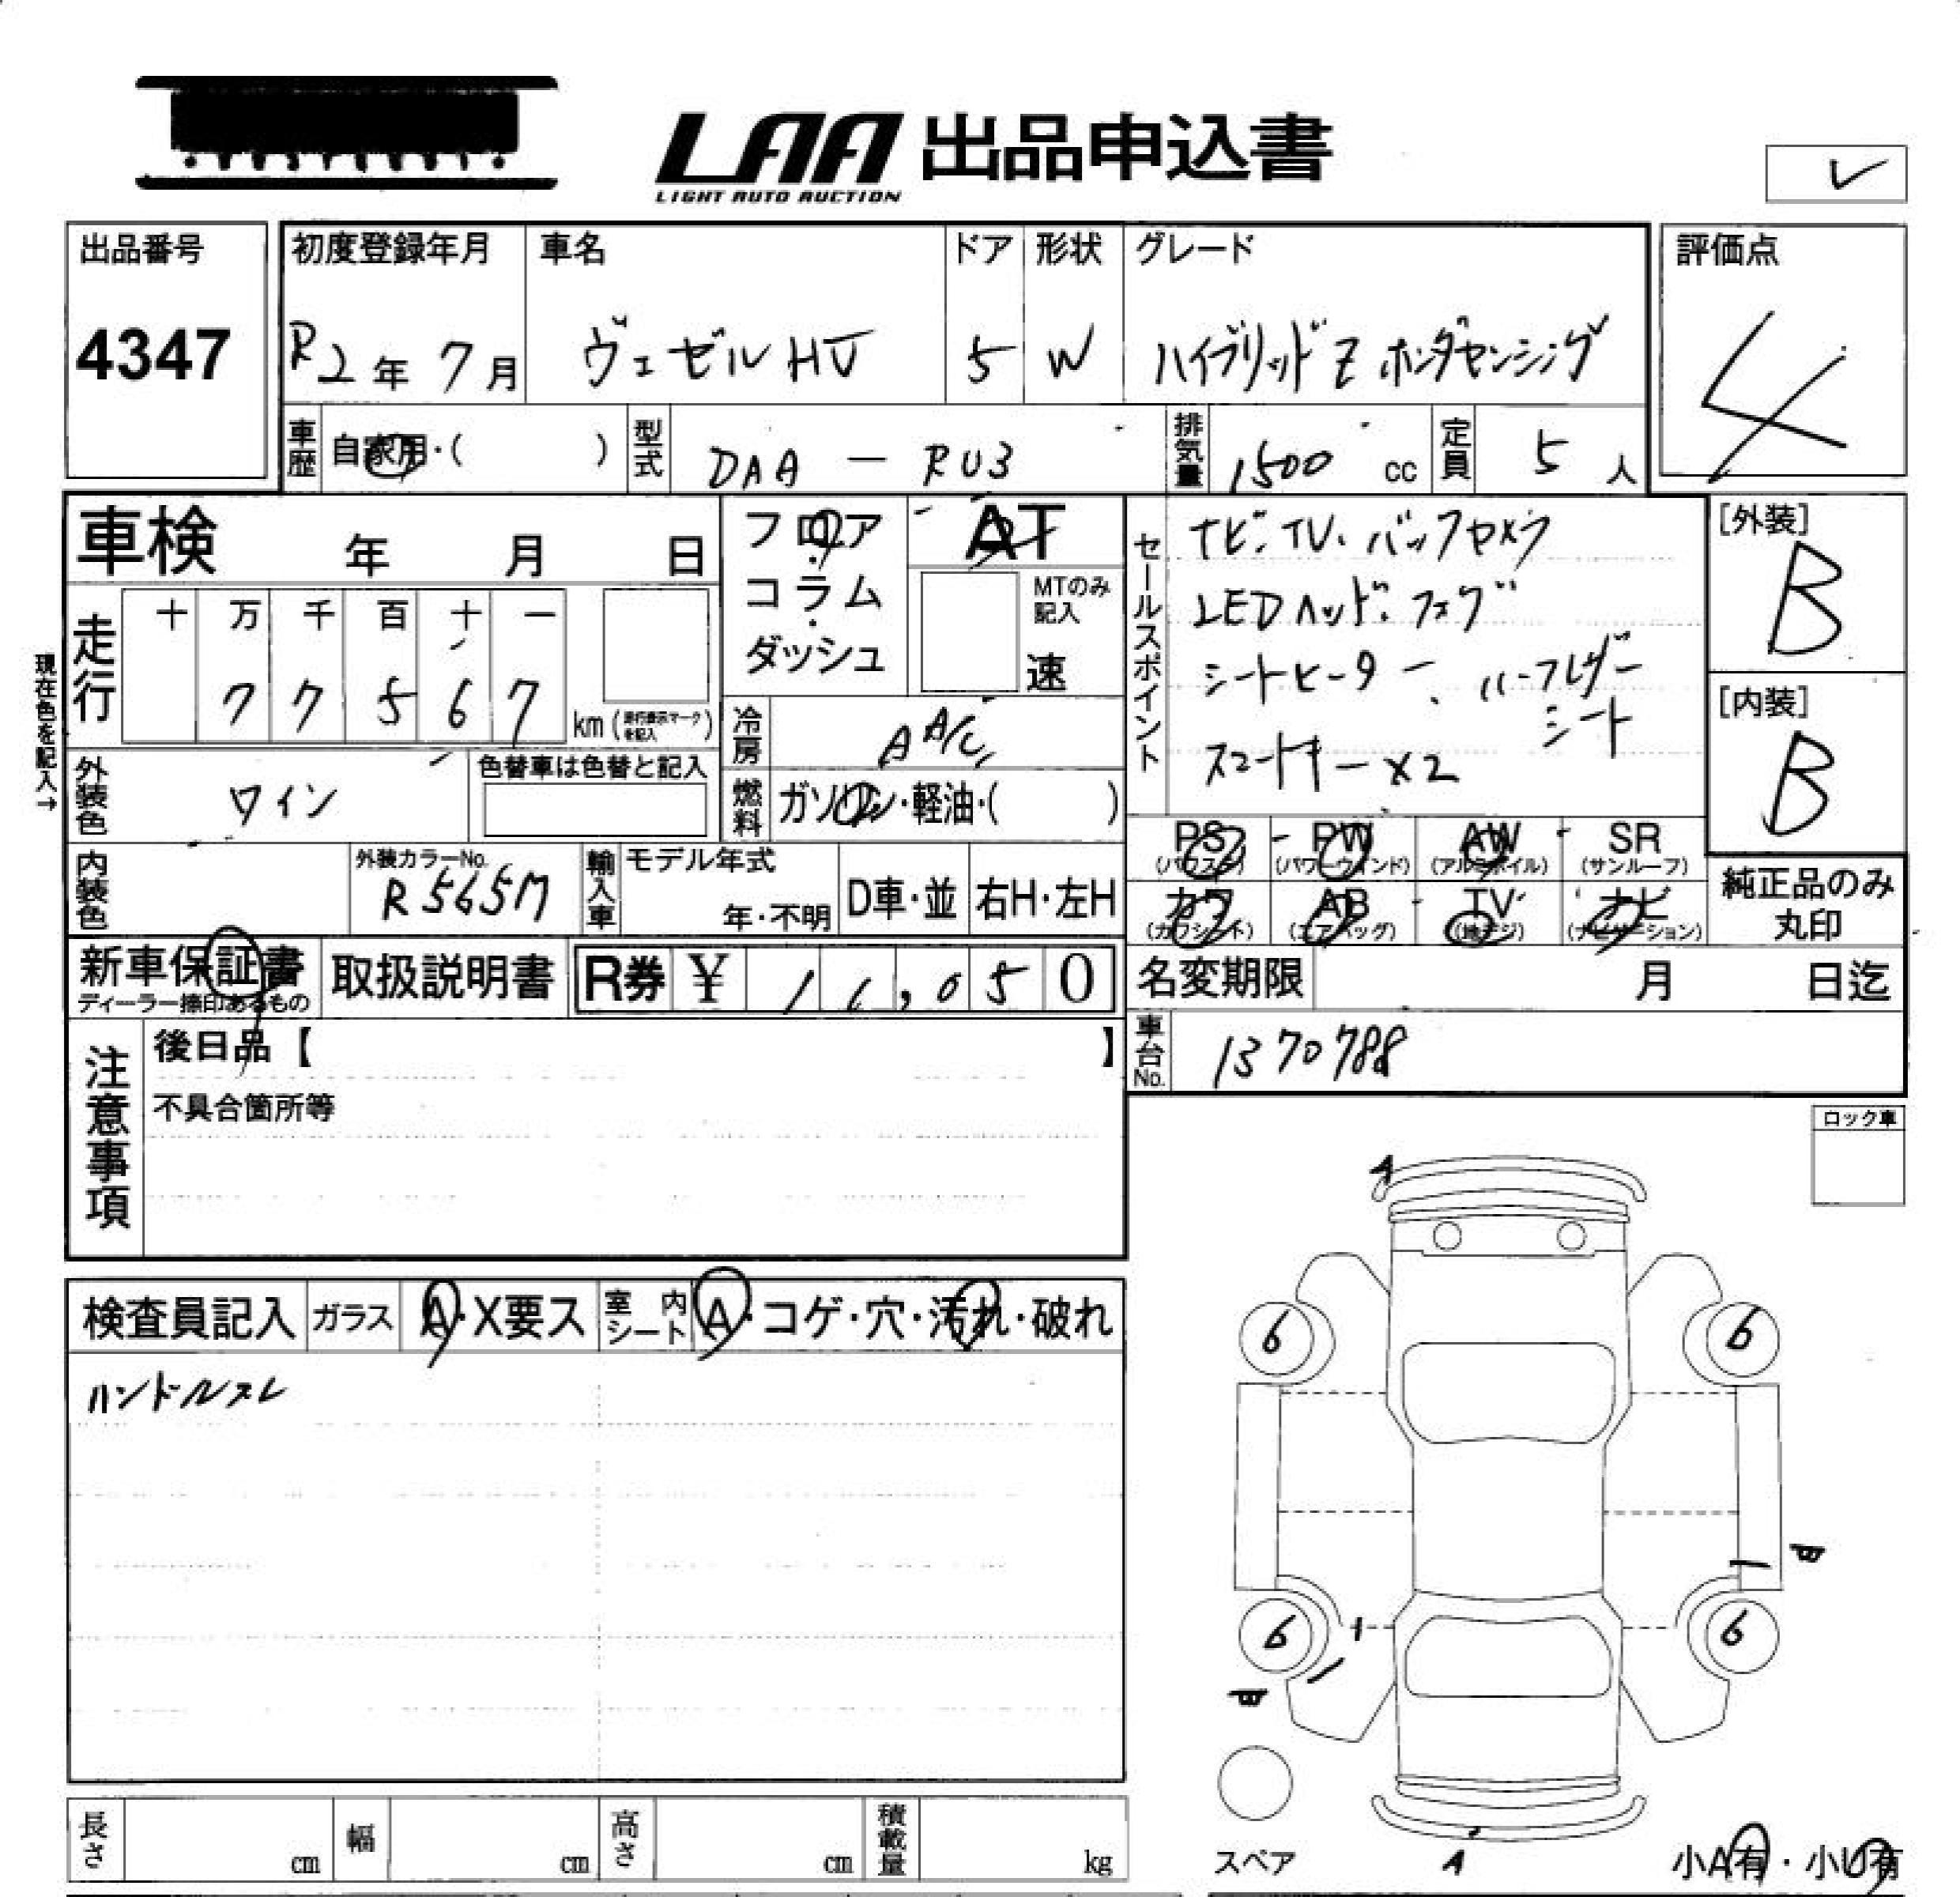 LAA 出品申込書
LIGHT AUTO AUCTION
✓
出品番号
4347
初度登録年月
R2年 7月
車名
ヴェゼル HV
ドア
5
形状
W
グレード
ハイブリッド Z ホンダセンシング
評価点
4
車歴 自家用・( )
型式 DAA-RU3
排気量 1500 cc
定員 5 人
車検 年 月 日
フロア・コラム・ダッシュ
AT
MTのみ記入
速
セールスポイント
ナビ・TV・バックカメラ
LEDヘッド・フォグ
シートヒーター、ハーフレザー
シート
スマートキー×2
[外装]
B
[内装]
B
現在色を記入→
走行
十 万 千 百 十 一
7 7 5 6 7 km(走行表示マークを記入)
冷房 AA/C
外装色 ワイン
色替車は色替と記入
燃料 ガソリン・軽油・( )
PS (パワステ) PW (パワーウィンド) AW (アルミホイル) SR (サンルーフ)
カワ (カワシート) AB (エアバッグ) TV (地デジ) ナビ (ナビゲーション)
純正品のみ
丸印
内装色
外装カラーNo.
R565M
輸入車 モデル年式
年・不明
D車・並 右H・左H
新車保証書
ディーラー捺印あるもの
取扱説明書
R券 ¥ 11,050
名変期限 月 日迄
車台No. 1370788
注意事項
後日品【 】
不具合箇所等
ロック車
検査員記入 ガラス A・X要ス 室内シート A・コゲ・穴・汚れ・破れ
ハンドルスレ
A
6 6
6 6
スペア
A
小A有・小U有
長さ cm 幅 cm 高さ cm 積載量 kg